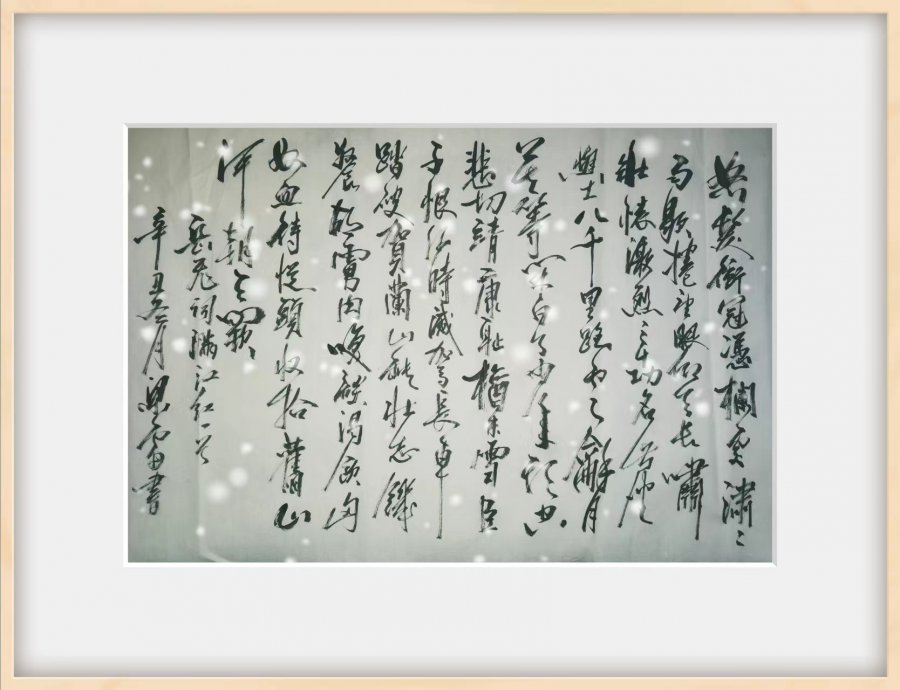 怒髮衝冠憑欄處瀟〻
雨歇抬望眼仰天長嘯
壯懷激烈三十功名塵
與土八千里路雲和月
莫等閒白了少年頭空
悲切靖康恥猶未雪臣
子恨何時滅駕長車
踏破賀蘭山缺壯志饑
餐胡虜肉笑談渴飲匈
奴血待從頭收拾舊山
河朝天闕
岳飛詞滿江红一首
辛丑二月梁雷書